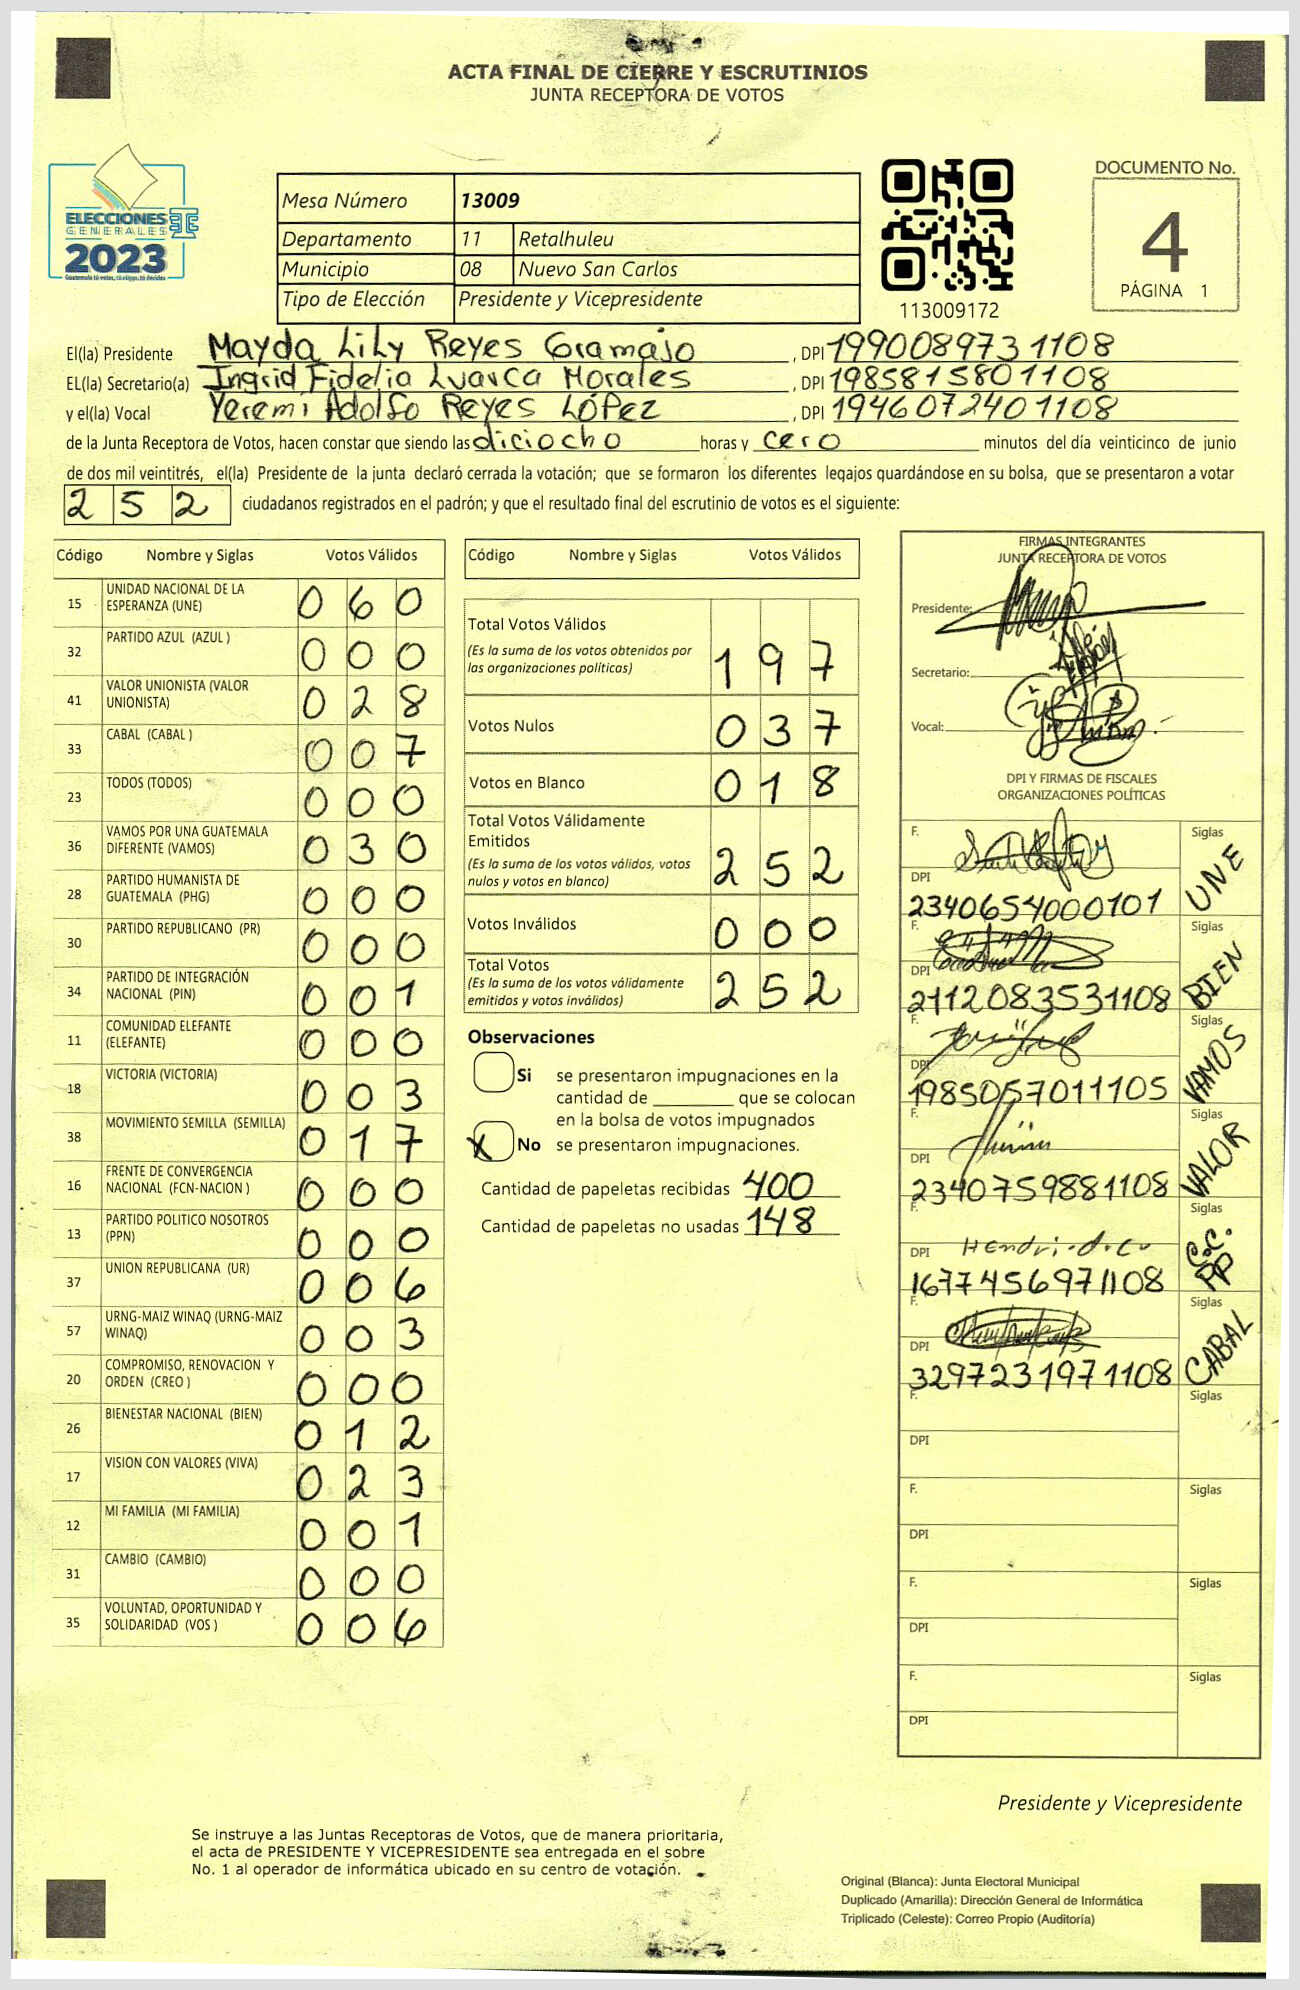 ACTA FINAL DE CIERRE Y ESCRUTINIOS
JUNTA RECEPTORA DE VOTOS
ELECCIONES
GENERALES
2023
Mesa Número 13009
Departamento 11 Retalhuleu
Municipio 08 Nuevo San Carlos
Tipo de Elección Presidente y Vicepresidente
113009172
DOCUMENTO No.
4
PÁGINA 1
El(la) Presidente Mayda Lily Reyes Gramajo, DPI 1990089731108
EL(la) Secretario(a) Ingrid Fidelia Luarca Morales, DPI 1985815801108
y el(la) Vocal Yeremi Adolfo Reyes López, DPI 1946072401108
de la Junta Receptora de Votos, hacen constar que siendo las diciocho horas y cero minutos del día veinticinco de junio
de dos mil veintitrés, el(la) Presidente de la junta declaró cerrada la votación; que se formaron los diferentes legajos guardándose en su bolsa, que se presentaron a votar
252 ciudadanos registrados en el padrón; y que el resultado final del escrutinio de votos es el siguiente:
Código Nombre y Siglas Votos Válidos
15 UNIDAD NACIONAL DE LA ESPERANZA (UNE) 060
32 PARTIDO AZUL (AZUL ) 000
41 VALOR UNIONISTA (VALOR UNIONISTA) 028
33 CABAL (CABAL ) 007
23 TODOS (TODOS) 000
36 VAMOS POR UNA GUATEMALA DIFERENTE (VAMOS) 030
28 PARTIDO HUMANISTA DE GUATEMALA (PHG) 000
30 PARTIDO REPUBLICANO (PR) 000
34 PARTIDO DE INTEGRACIÓN NACIONAL (PIN) 001
11 COMUNIDAD ELEFANTE (ELEFANTE) 000
18 VICTORIA (VICTORIA) 003
38 MOVIMIENTO SEMILLA (SEMILLA) 017
16 FRENTE DE CONVERGENCIA NACIONAL (FCN-NACION ) 000
13 PARTIDO POLITICO NOSOTROS (PPN) 000
37 UNION REPUBLICANA (UR) 006
57 URNG-MAIZ WINAQ (URNG-MAIZ WINAQ) 003
20 COMPROMISO, RENOVACION Y ORDEN (CREO ) 000
26 BIENESTAR NACIONAL (BIEN) 012
17 VISION CON VALORES (VIVA) 023
12 MI FAMILIA (MI FAMILIA) 001
31 CAMBIO (CAMBIO) 000
35 VOLUNTAD, OPORTUNIDAD Y SOLIDARIDAD (VOS ) 006
Código Nombre y Siglas Votos Válidos
Total Votos Válidos
(Es la suma de los votos obtenidos por las organizaciones políticas) 197
Votos Nulos 037
Votos en Blanco 018
Total Votos Válidamente Emitidos
(Es la suma de los votos válidos, votos nulos y votos en blanco) 252
Votos Inválidos 000
Total Votos
(Es la suma de los votos válidamente emitidos y votos inválidos) 252
Observaciones
Si se presentaron impugnaciones en la
cantidad de ________ que se colocan
en la bolsa de votos impugnados
X No se presentaron impugnaciones.
Cantidad de papeletas recibidas 400
Cantidad de papeletas no usadas 148
FIRMAS INTEGRANTES
JUNTA RECEPTORA DE VOTOS
Presidente:
Secretario:
Vocal:
DPI Y FIRMAS DE FISCALES
ORGANIZACIONES POLÍTICAS
F. Siglas
DPI 2340654000101 UNE
F. Siglas
DPI 2112083531108 BIEN
F. Siglas
DPI 1985057011105 VAMOS
F. Siglas
DPI 2340759881108 VALOR
F. Siglas
DPI 1677456971108 PP
F. Siglas
DPI 3297231971108 CABAL
F. Siglas
DPI
F. Siglas
DPI
F. Siglas
DPI
F. Siglas
DPI
Presidente y Vicepresidente
Se instruye a las Juntas Receptoras de Votos, que de manera prioritaria,
el acta de PRESIDENTE Y VICEPRESIDENTE sea entregada en el sobre
No. 1 al operador de informática ubicado en su centro de votación.
Original (Blanca): Junta Electoral Municipal
Duplicado (Amarilla): Dirección General de Informática
Triplicado (Celeste): Correo Propio (Auditoría)